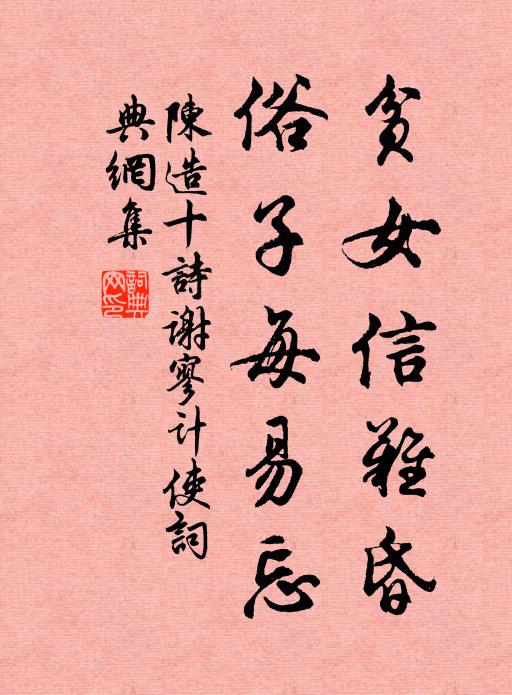 貧女信難昏
俗子每易忘
陳造十詩謝寥計使詞
典網集
詞典网印